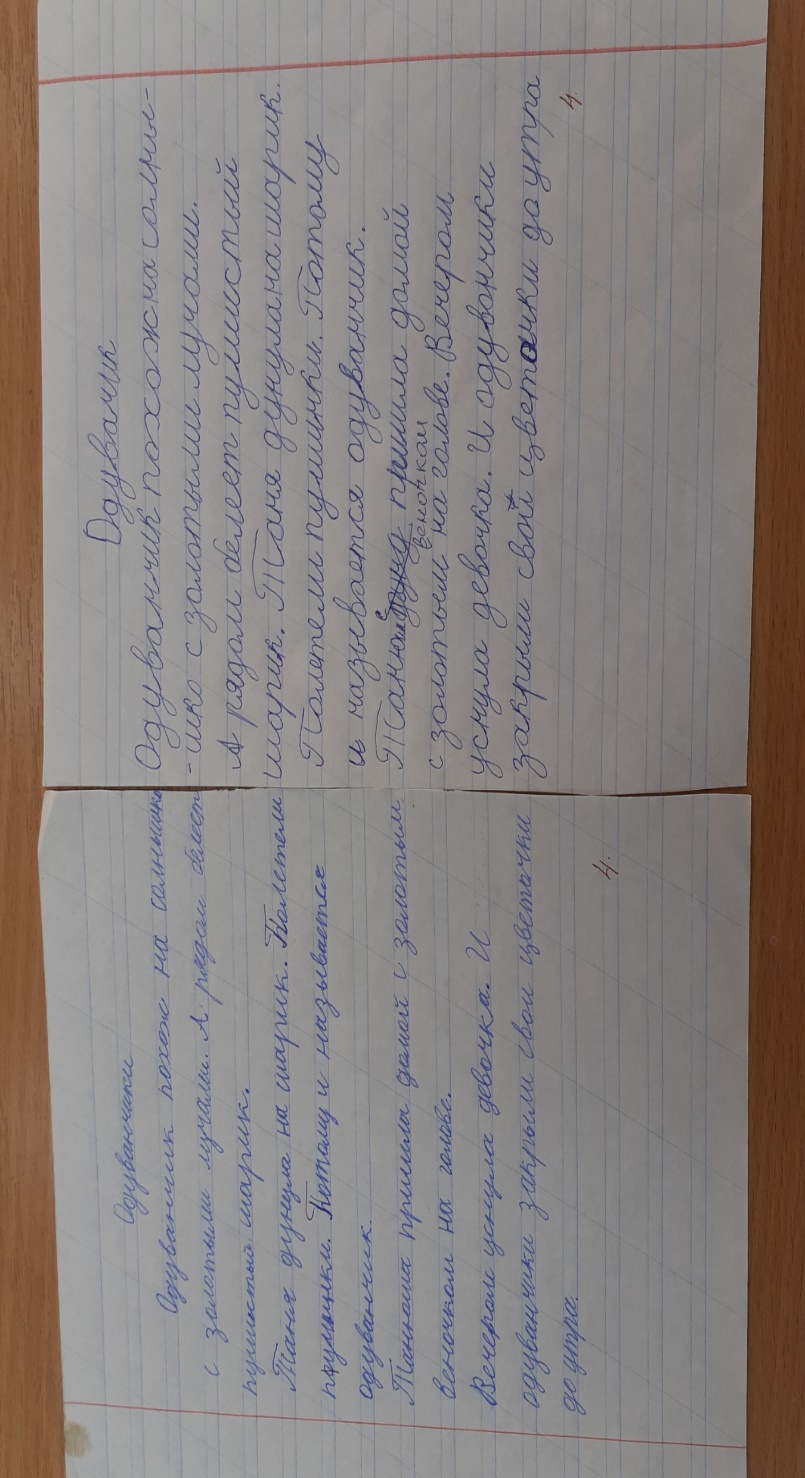 Одуванчик
Одуванчик похож на солныл-
-шко с золотыми лучами.
А рядом белеет пушистый
шарик. Таня дунула на шарик.
Полетели пушинки. Потому
и называется одуванчик.
Танюша пришла домой
веночкам
с золотыем на голове. Вечером
уснула девочка. И одувончики
закрыли свой цветочки до утра
4.
Одуванчики
Одуванчик похож на солнышко
с золотыми лучами. А рядом белеет
пушистый шарик.
Таня дунула на шарик. Полетели
пушинки. Потому и называется
одуванчик.
Танюша пришла домой с золотым
веночком на голове.
Вечером уснула девочка. И
одуванчики закрыли свои цветочки
до утра.
4.